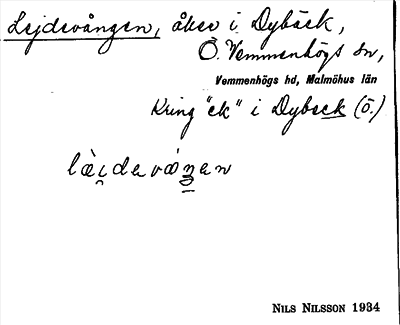 Lejdevången, åker i Dybäck,
Ö. Vemmenhögs sn,
Vemmenhögs hd, Malmöhus län
Kring "ck" i Dybeck (ö.)
NILS NILSSON 1934